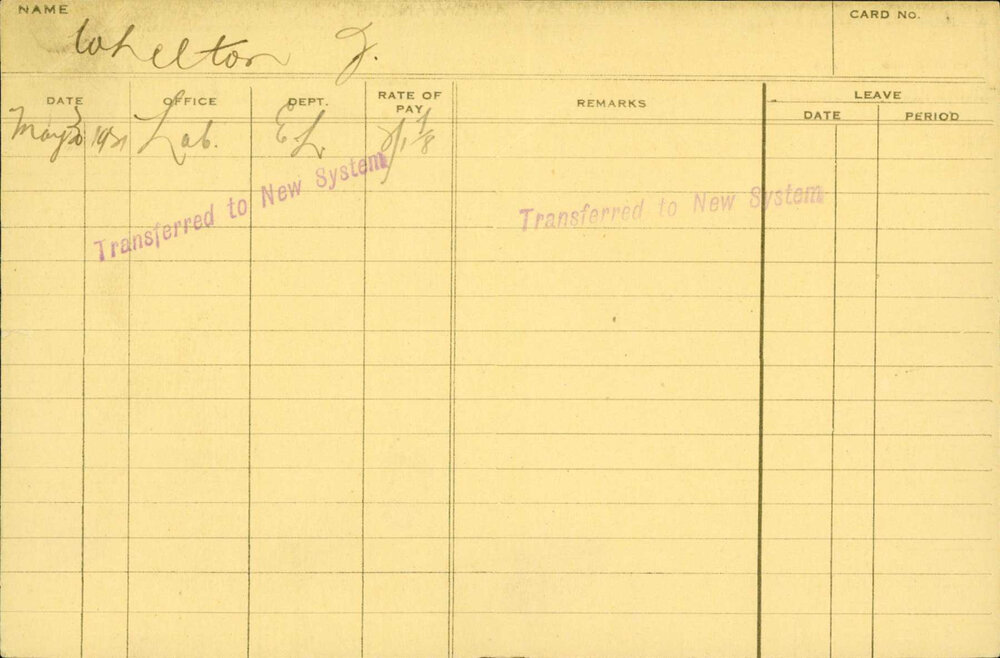 NAME
Whelton J.
CARD No.
DATE OFFICE DEPT. RATE OF PAY REMARKS LEAVE
DATE PERIOD
May 1921 Lab. EL
Transferred to New System
Transferred to New System